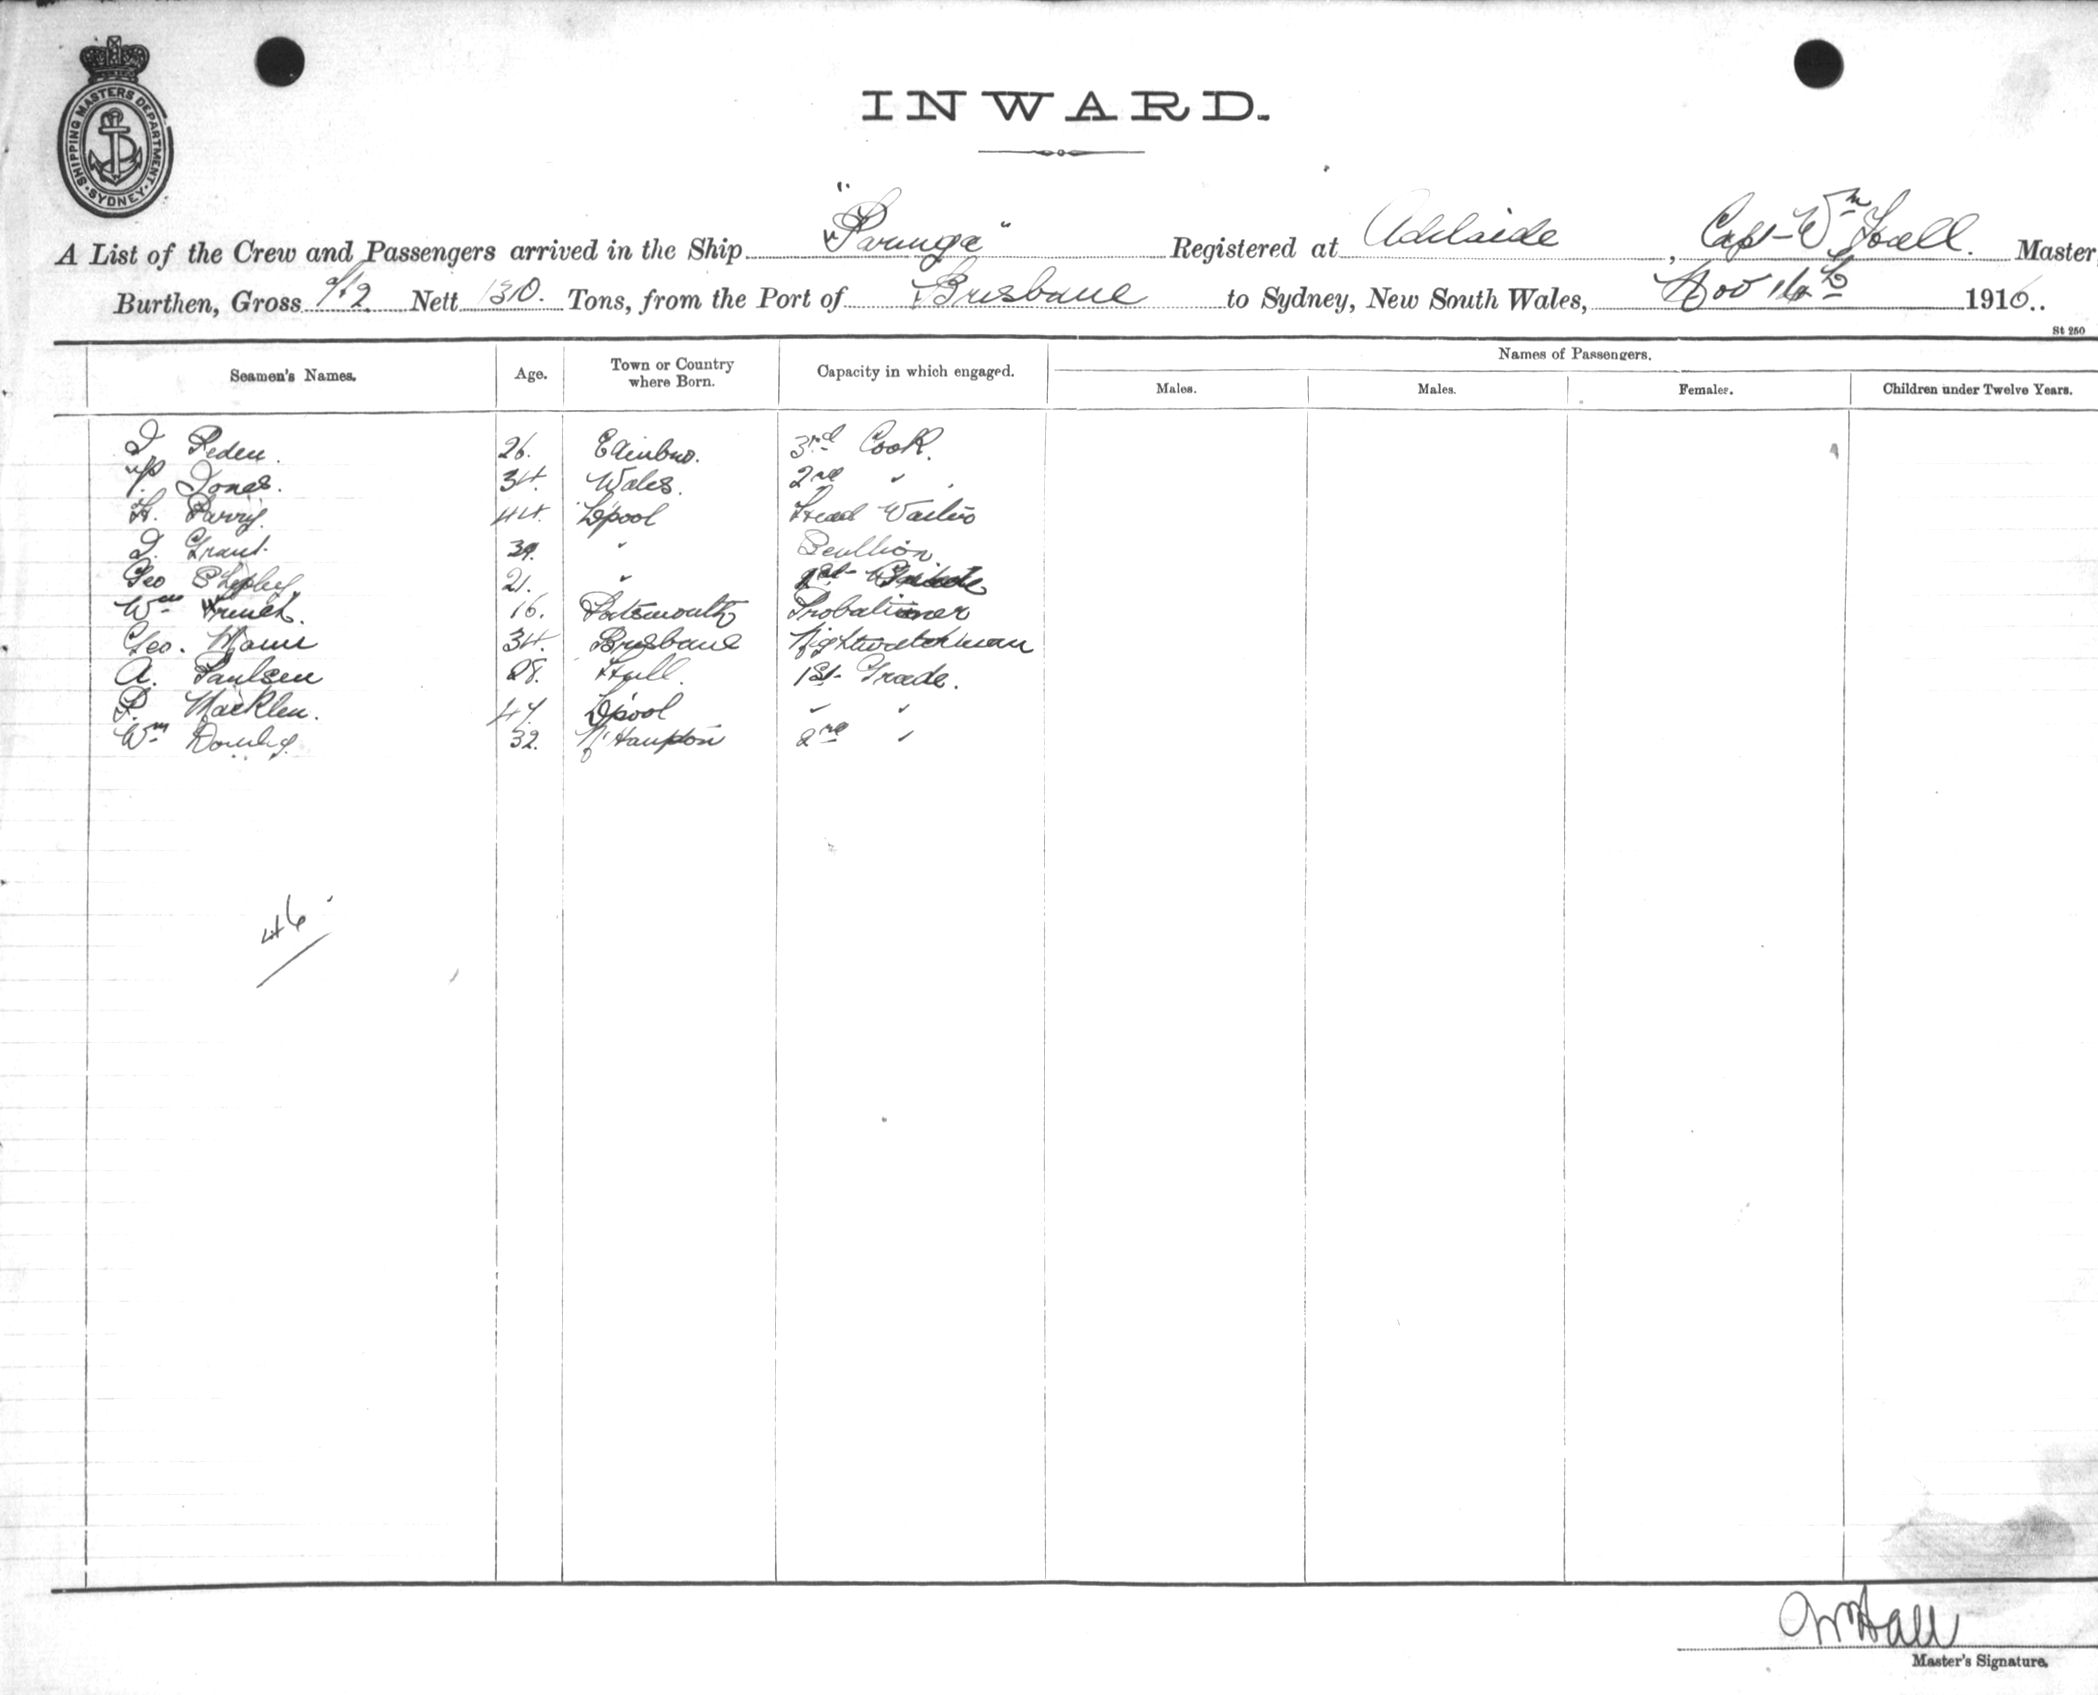 SHIPPING MASTERS DEPARTMENT. SYDNEY
INWARD.
A List of the Crew and Passengers arrived in the Ship "Parunga" Registered at Adelaide, Capt Wm Hall. Master,
Burthen, Gross Nett 1310. Tons, from the Port of Brisbane to Sydney, New South Wales, Nov 16th 1916..
St 250
Seamen's Names. Age. Town or Country where Born. Capacity in which engaged. Names of Passengers.
Males. Males. Females. Children under Twelve Years.
J. Peden. 26. Edinbro. 3rd Cook.
Jones. 34. Wales. 2nd "
H. Parry. 44. L'pool Head Waiter
J. Grant. 39. " Scullion
Geo 21. " 1st
Wm French. 16. Portsmouth Probationer
Geo. Mann 34. Brisbane Nightwatchman
A. Paulsen 28. Hull. 1st Grade.
P. Macklen. 47. L'pool " "
Wm 32. N'Hampton 2nd "
46
Wm Hall
Master's Signature.